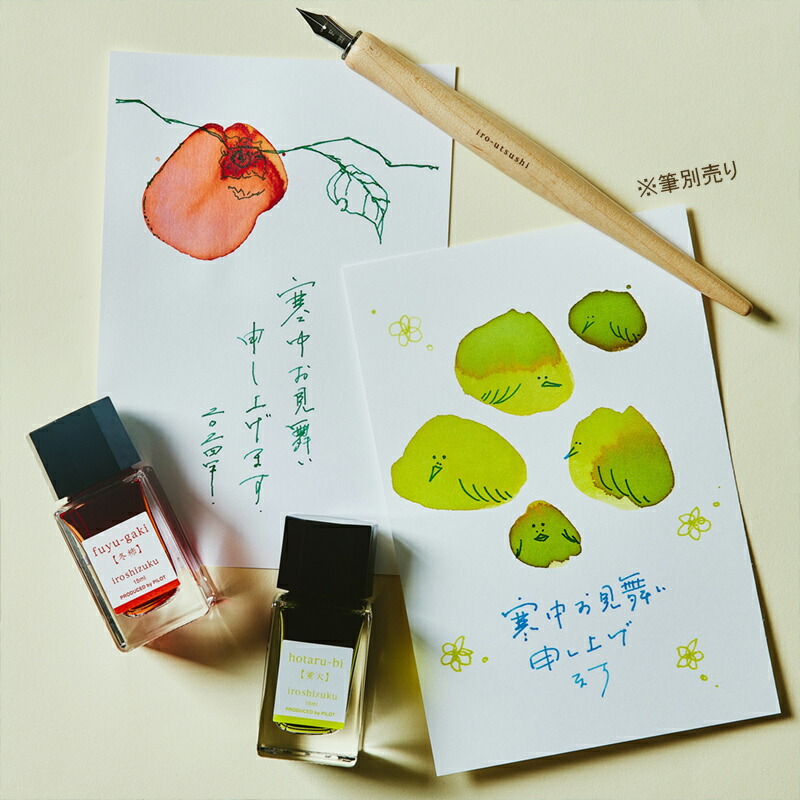 iro-utsushi
※筆別売り
寒中お見舞い
申し上げます。
二〇二四年
寒中お見舞い
申し上げ
ます
fuyu-gaki
【冬柿】
iroshizuku
15ml
PRODUCED by PILOT
hotaru-bi
【蛍火】
iroshizuku
15ml
PRODUCED by PILOT